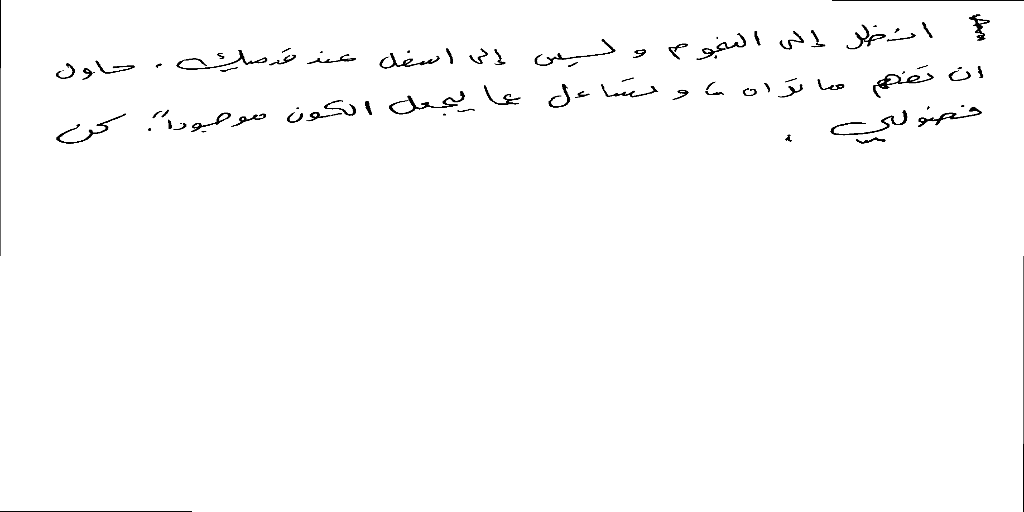 انظر إلى النجوم و ليس إلى اسفل عند قدميك . حاول
ان تفهم ما تراه ، و تتساءل عما يجعل الكون موجوداً . كن
فضولي .